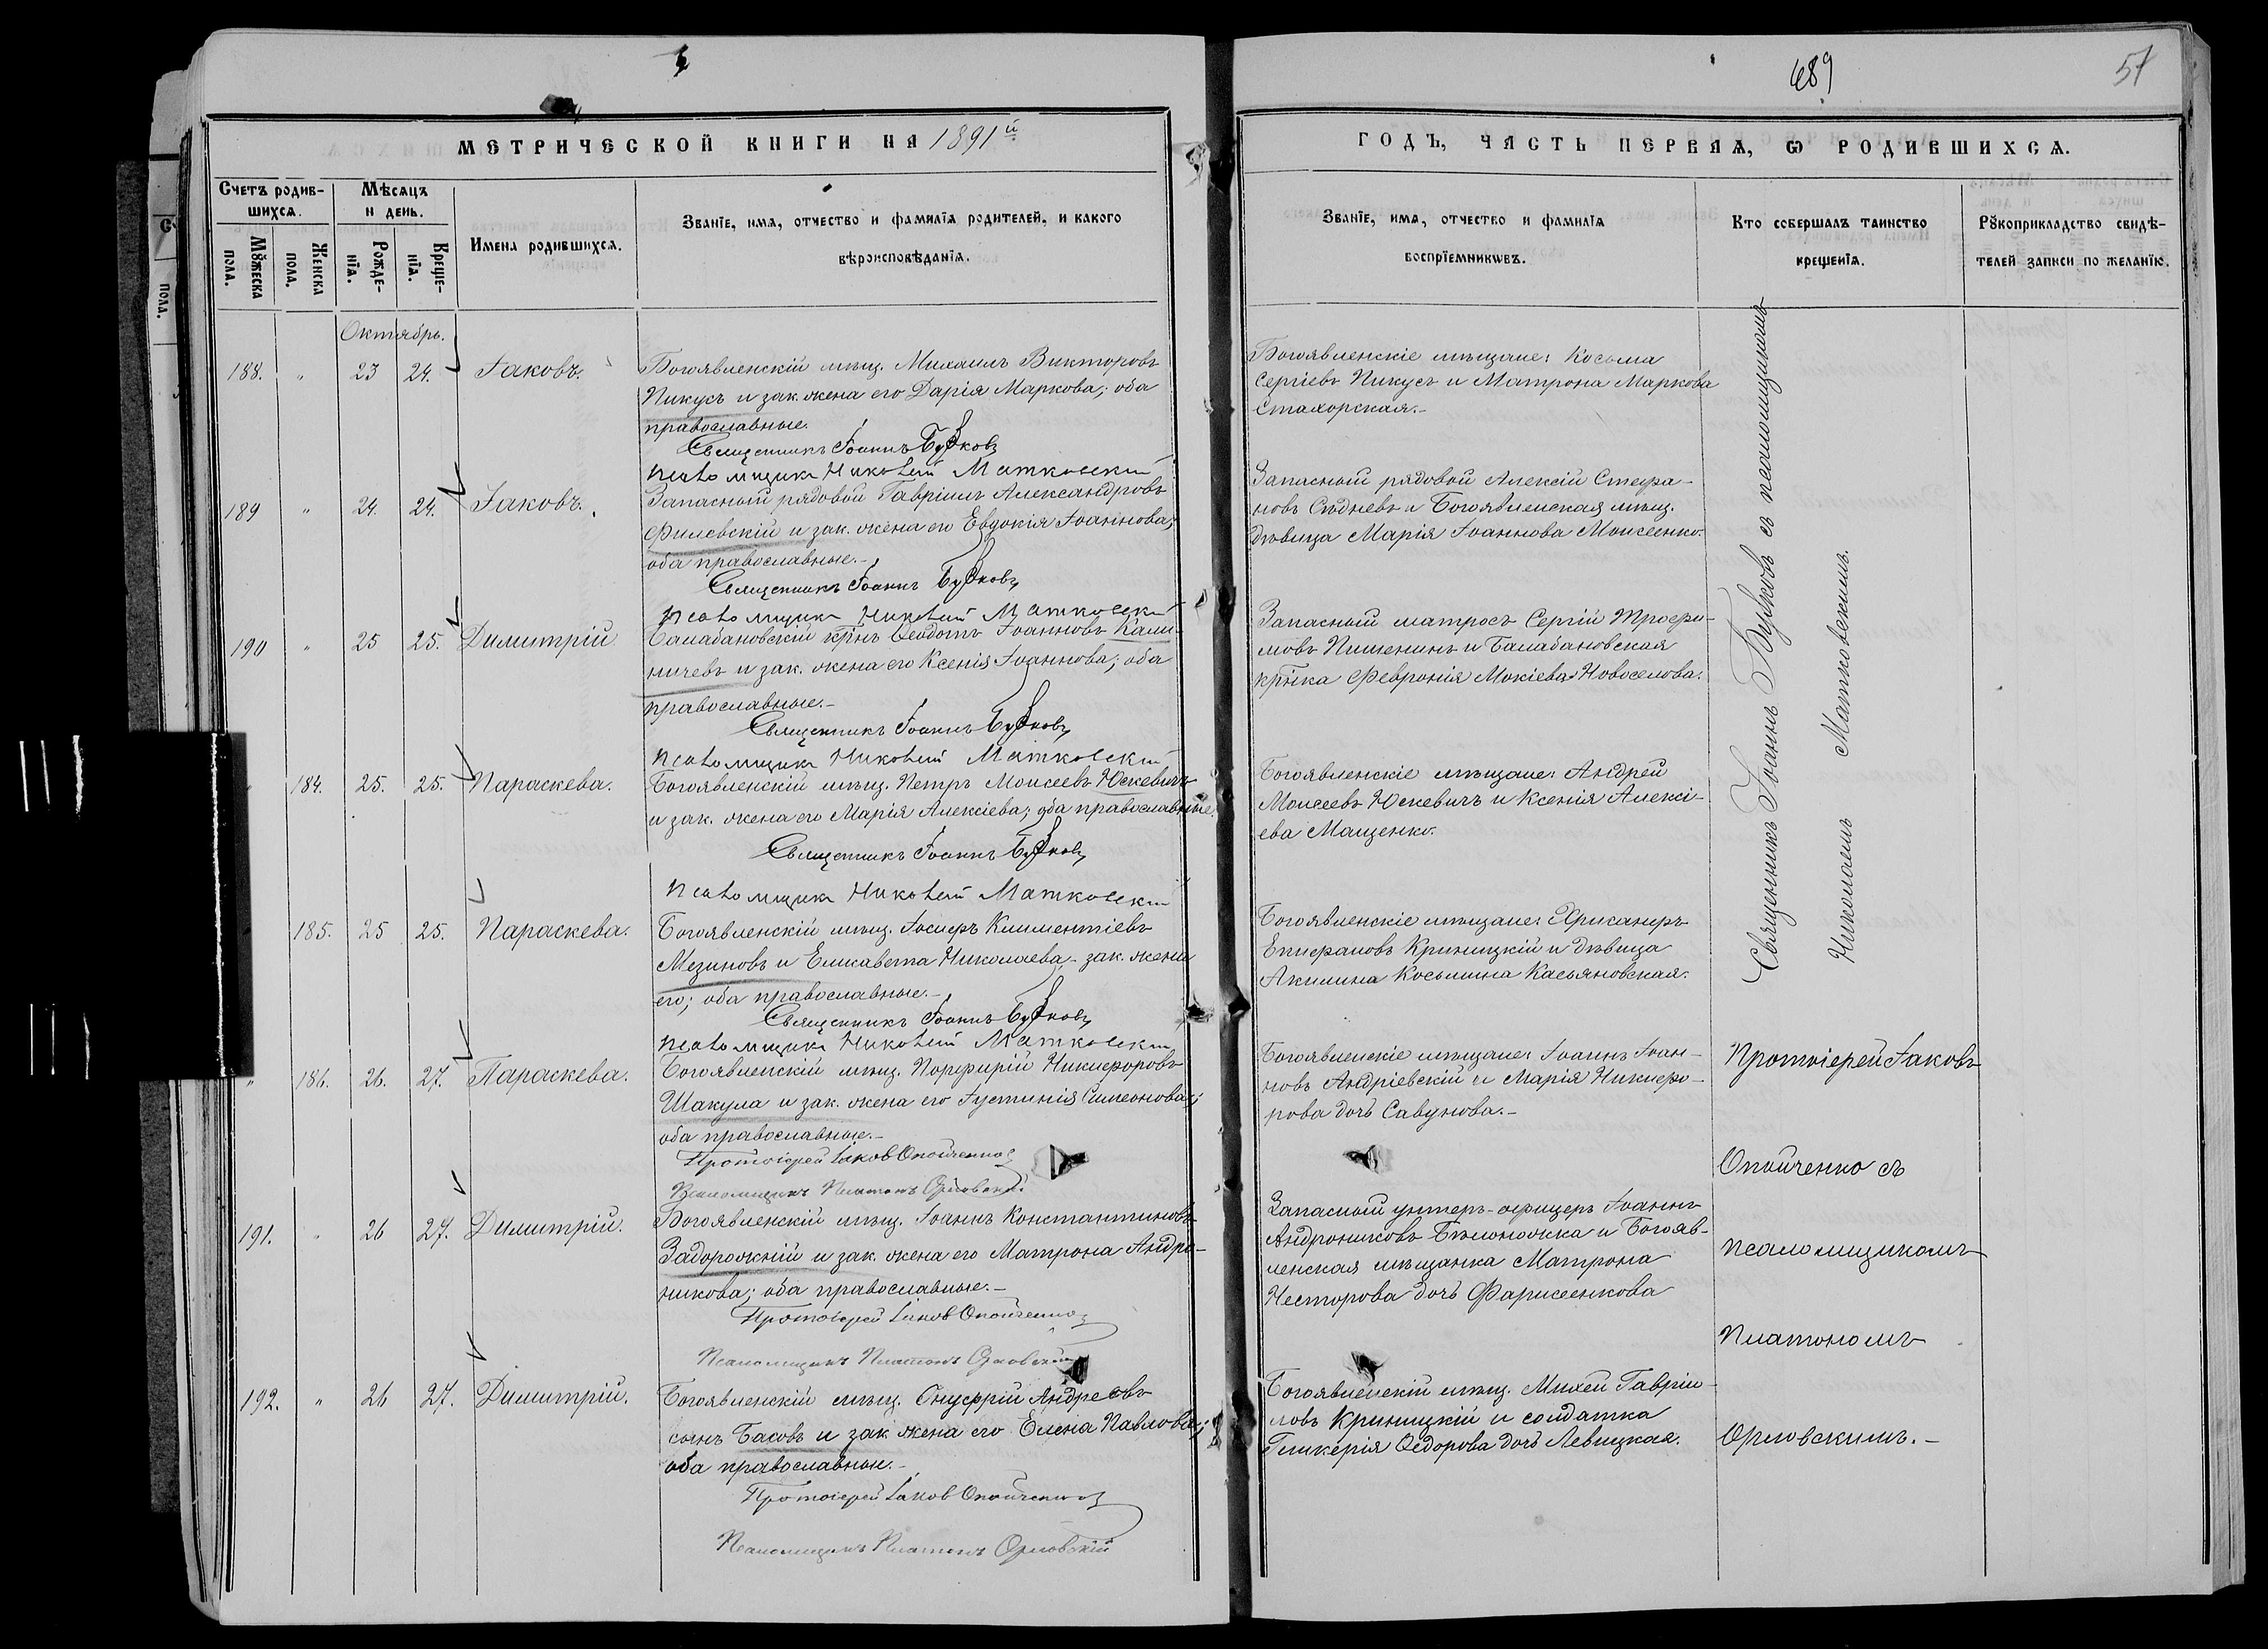 489
57
МЕТРИЧЕСКОЙ КНИГИ НА 1891й
ГОДЪ, ЧАСТЬ ПЕРВАЯ, Ѡ РОДИВШИХСЯ.
Счетъ родив-
шихся.
Мѣсяцъ
и день.
Мꙋжеска
пола.
Женска
пола.
Рожде-
нїя.
Креще-
нїя.
Имена родившихся.
Званїе, имя, отчество и фамилїя родителей, и какого
вѣроисповѣданїя.
Званїе, имя, отчество и фамилїя
воспрїемникѡвъ.
Кто совершалъ таинство
крещенїя.
Рꙋкоприкладство свидѣ-
телей записи по желанїю.
Октябрь.
188. " 23 24. Іаковъ.
Богоявленскій мѣщ. Михаилъ Викторовъ
Пикусъ и зак. жена его Дарія Маркова; оба
православные.
Священникъ Іоаннъ Бутковъ
Псаломщикъ Николай Матковскій
Богоявленскіе мѣщане: Косьма
Сергіевъ Пикусъ и Матрона Маркова
Стахорская.-
189 " 24. 24. Іаковъ.
Запасный рядовой Гавріилъ Александровъ
Филевскій и зак. жена его Евдокія Іоаннова;
оба православные.-
Священникъ Іоаннъ Бутковъ
Псаломщикъ Николай Матковскій
Запасный рядовой Алексій Стефа-
новъ Сѣдневъ и Богоявленская мѣщ.
дѣвица Марія Іоаннова Моисеенко.
190 " 25 25. Димитрій
Балабановскій кр̃нъ Ѳеодотъ Іоанновъ Кали-
ничевъ и зак. жена его Ксенія Іоаннова; оба
православные.-
Священникъ Іоаннъ Бутковъ
Псаломщикъ Николай Матковскій
Запасный матросъ Сергій Трофи-
мовъ Пишенинъ и Балабановская
кр̃нка Февронія Мокіева Новоселова.
184. 25. 25. Параскева.
Богоявленскій мѣщ. Петръ Моисеевъ Юскевичъ
и зак. жена его Марія Алексіева; оба православные.
Священникъ Іоаннъ Бутковъ
Псаломщикъ Николай Матковскій
Богоявленскіе мѣщане: Андрей
Моисеевъ Юскевичъ и Ксенія Алексі-
ева Мащенко.
185. 25 25. Параскева.
Богоявленскій мѣщ. Іосифъ Климентіевъ
Мезиновъ и Елисавета Николаева,- зак. жена
его; оба православные.-
Священникъ Іоаннъ Бутковъ
Псаломщикъ Николай Матковскій
Богоявленскіе мѣщане:
Епифановъ Криницкій и дѣвица
Акилина Косьмина Касьяновская.
Священникъ Іоаннъ Бутковъ съ псаломщикомъ
Николаемъ Матковскимъ.
" 186. 26. 27. Параскева.
Богоявленскій мѣщ. Порфирій Никифоровъ
Шакула и зак. жена его Іустинія Симеонова;
оба православные.-
Протоіерей Іаковъ Опойченко
Псаломщикъ Платонъ Орловскій
Богоявленскіе мѣщане: Іоаннъ Іоан-
новъ Андріевскій и Марія Никифо-
рова дочь Савунова.-
191. " 26 27. Димитрій.
Богоявленскій мѣщ. Іоаннъ Константиновъ
Задорожній и зак. жена его Матрона Андро-
никова; оба православные.-
Протоіерей Іаковъ Опойченко
Псаломщикъ Платонъ Орловскій
Запасный унтеръ-офицеръ Іоаннъ
Андрониковъ Бѣлоножка и Богояв-
ленская мѣщанка Матрона
Несторова дочь Фарисеенкова
192. " 26 27. Димитрій.
Богоявленскій мѣщ. Онуфрій Андреевъ
сынъ Басовъ и зак. жена его Елена Павлова;
оба православные.-
Протоіерей Іаковъ Опойченко
Псаломщикъ Платонъ Орловскій
Богоявленскій мѣщ. Михей Гаврии-
ловъ Криницкій и солдатка
Гликерія Ѳедорова дочь Левицкая.
Протоіерей Іаковъ
Опойченко съ
псаломщикомъ
Платономъ
Орловскимъ.-